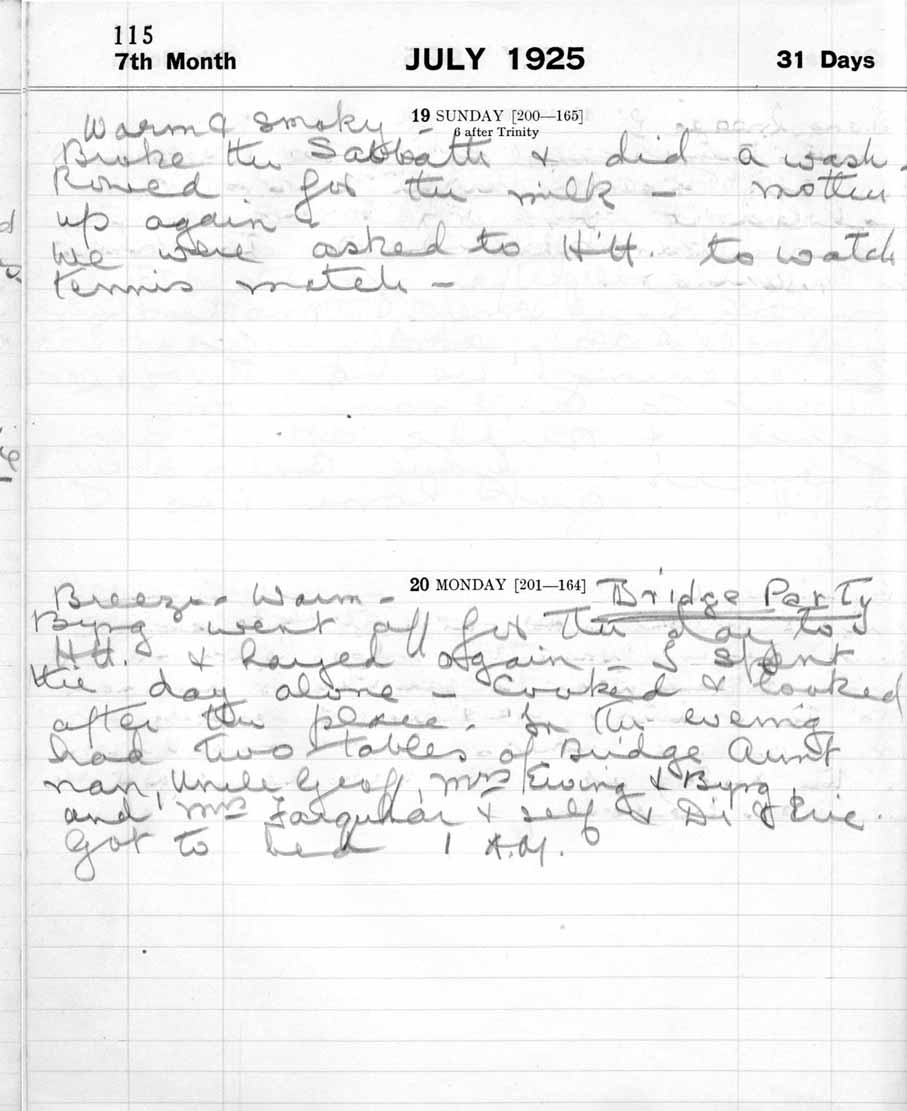 115
7th Month JULY 1925 31 Days
19 SUNDAY [200—165]
6 after Trinity
Warm & Smoky
Broke the Sabbath & did a wash.
Rowed for the milk - mother
up again
We were asked to H.H. to watch
tennis match -
20 MONDAY [201—164] Bridge Party
Breeze & Warm -
Byng went off for the day to
H.H. & hayed again - I spent
the day alone - Cooked & looked
after the place. In the evening
had two tables of Bridge Aunt
nan, Uncle Geoff, Mrs Ewing & Byng,
and Mrs Farquhar & self & Di & Eric.
Got to bed 1 A.M.